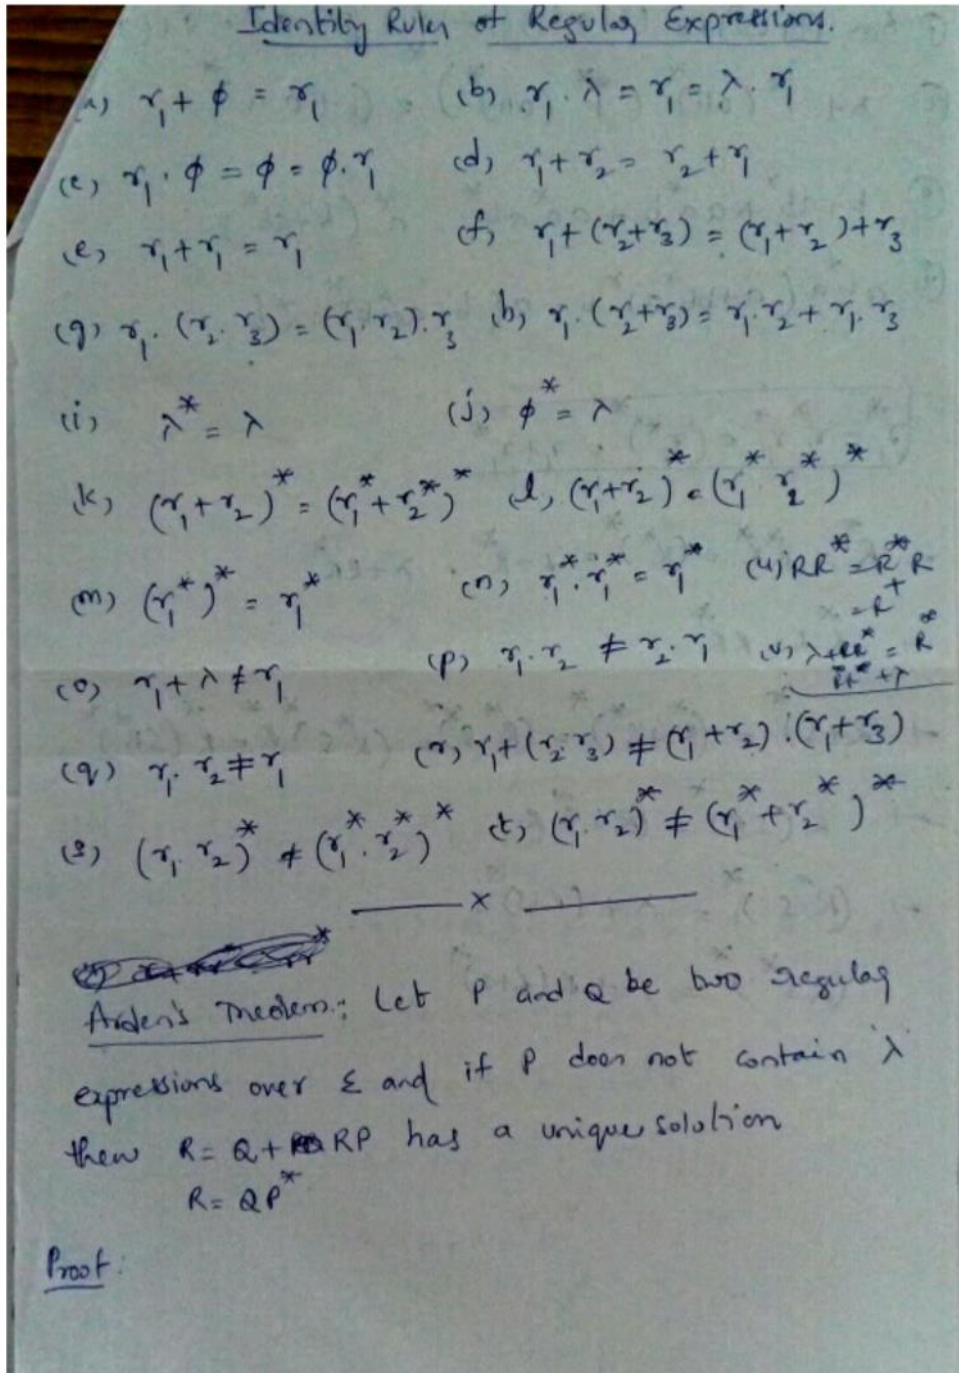 Identity Rules of Regular Expressions.
r₁ + ϕ = r₁ (b) r₁ · λ = r₁ = λ · r₁
(c) r₁ · ϕ = ϕ = ϕ · r₁ (d) r₁ + r₂ = r₂ + r₁
(e) r₁ + r₁ = r₁ (f) r₁ + (r₂ + r₃) = (r₁ + r₂) + r₃
(g) r₁ · (r₂ · r₃) = (r₁ · r₂) · r₃ (h) r₁ · (r₂ + r₃) = r₁ · r₂ + r₁ · r₃
(i) λ* = λ (j) ϕ* = λ
(k) (r₁ + r₂)* = (r₁* + r₂*)* (l) (r₁ + r₂)* = (r₁* r₂*)*
(m) (r₁*)* = r₁* (n) r₁* · r₁* = r₁* (u) RR* = R*R
= R⁺
(o) r₁ + λ ≠ r₁ (p) r₁ · r₂ ≠ r₂ · r₁ (v) λ + RR* = R*
(q) r₁ · r₂ ≠ r₁ (r) r₁ + (r₂ · r₃) ≠ (r₁ + r₂) · (r₁ + r₃)
(s) (r₁ · r₂)* ≠ (r₁* · r₂*)* (t) (r₁ · r₂)* ≠ (r₁* + r₂*)*
x
Arden's Theorem: Let P and Q be two regular
expressions over Σ and if P does not contain λ
then R = Q + RP has a unique solution
R = QP*
Proof: